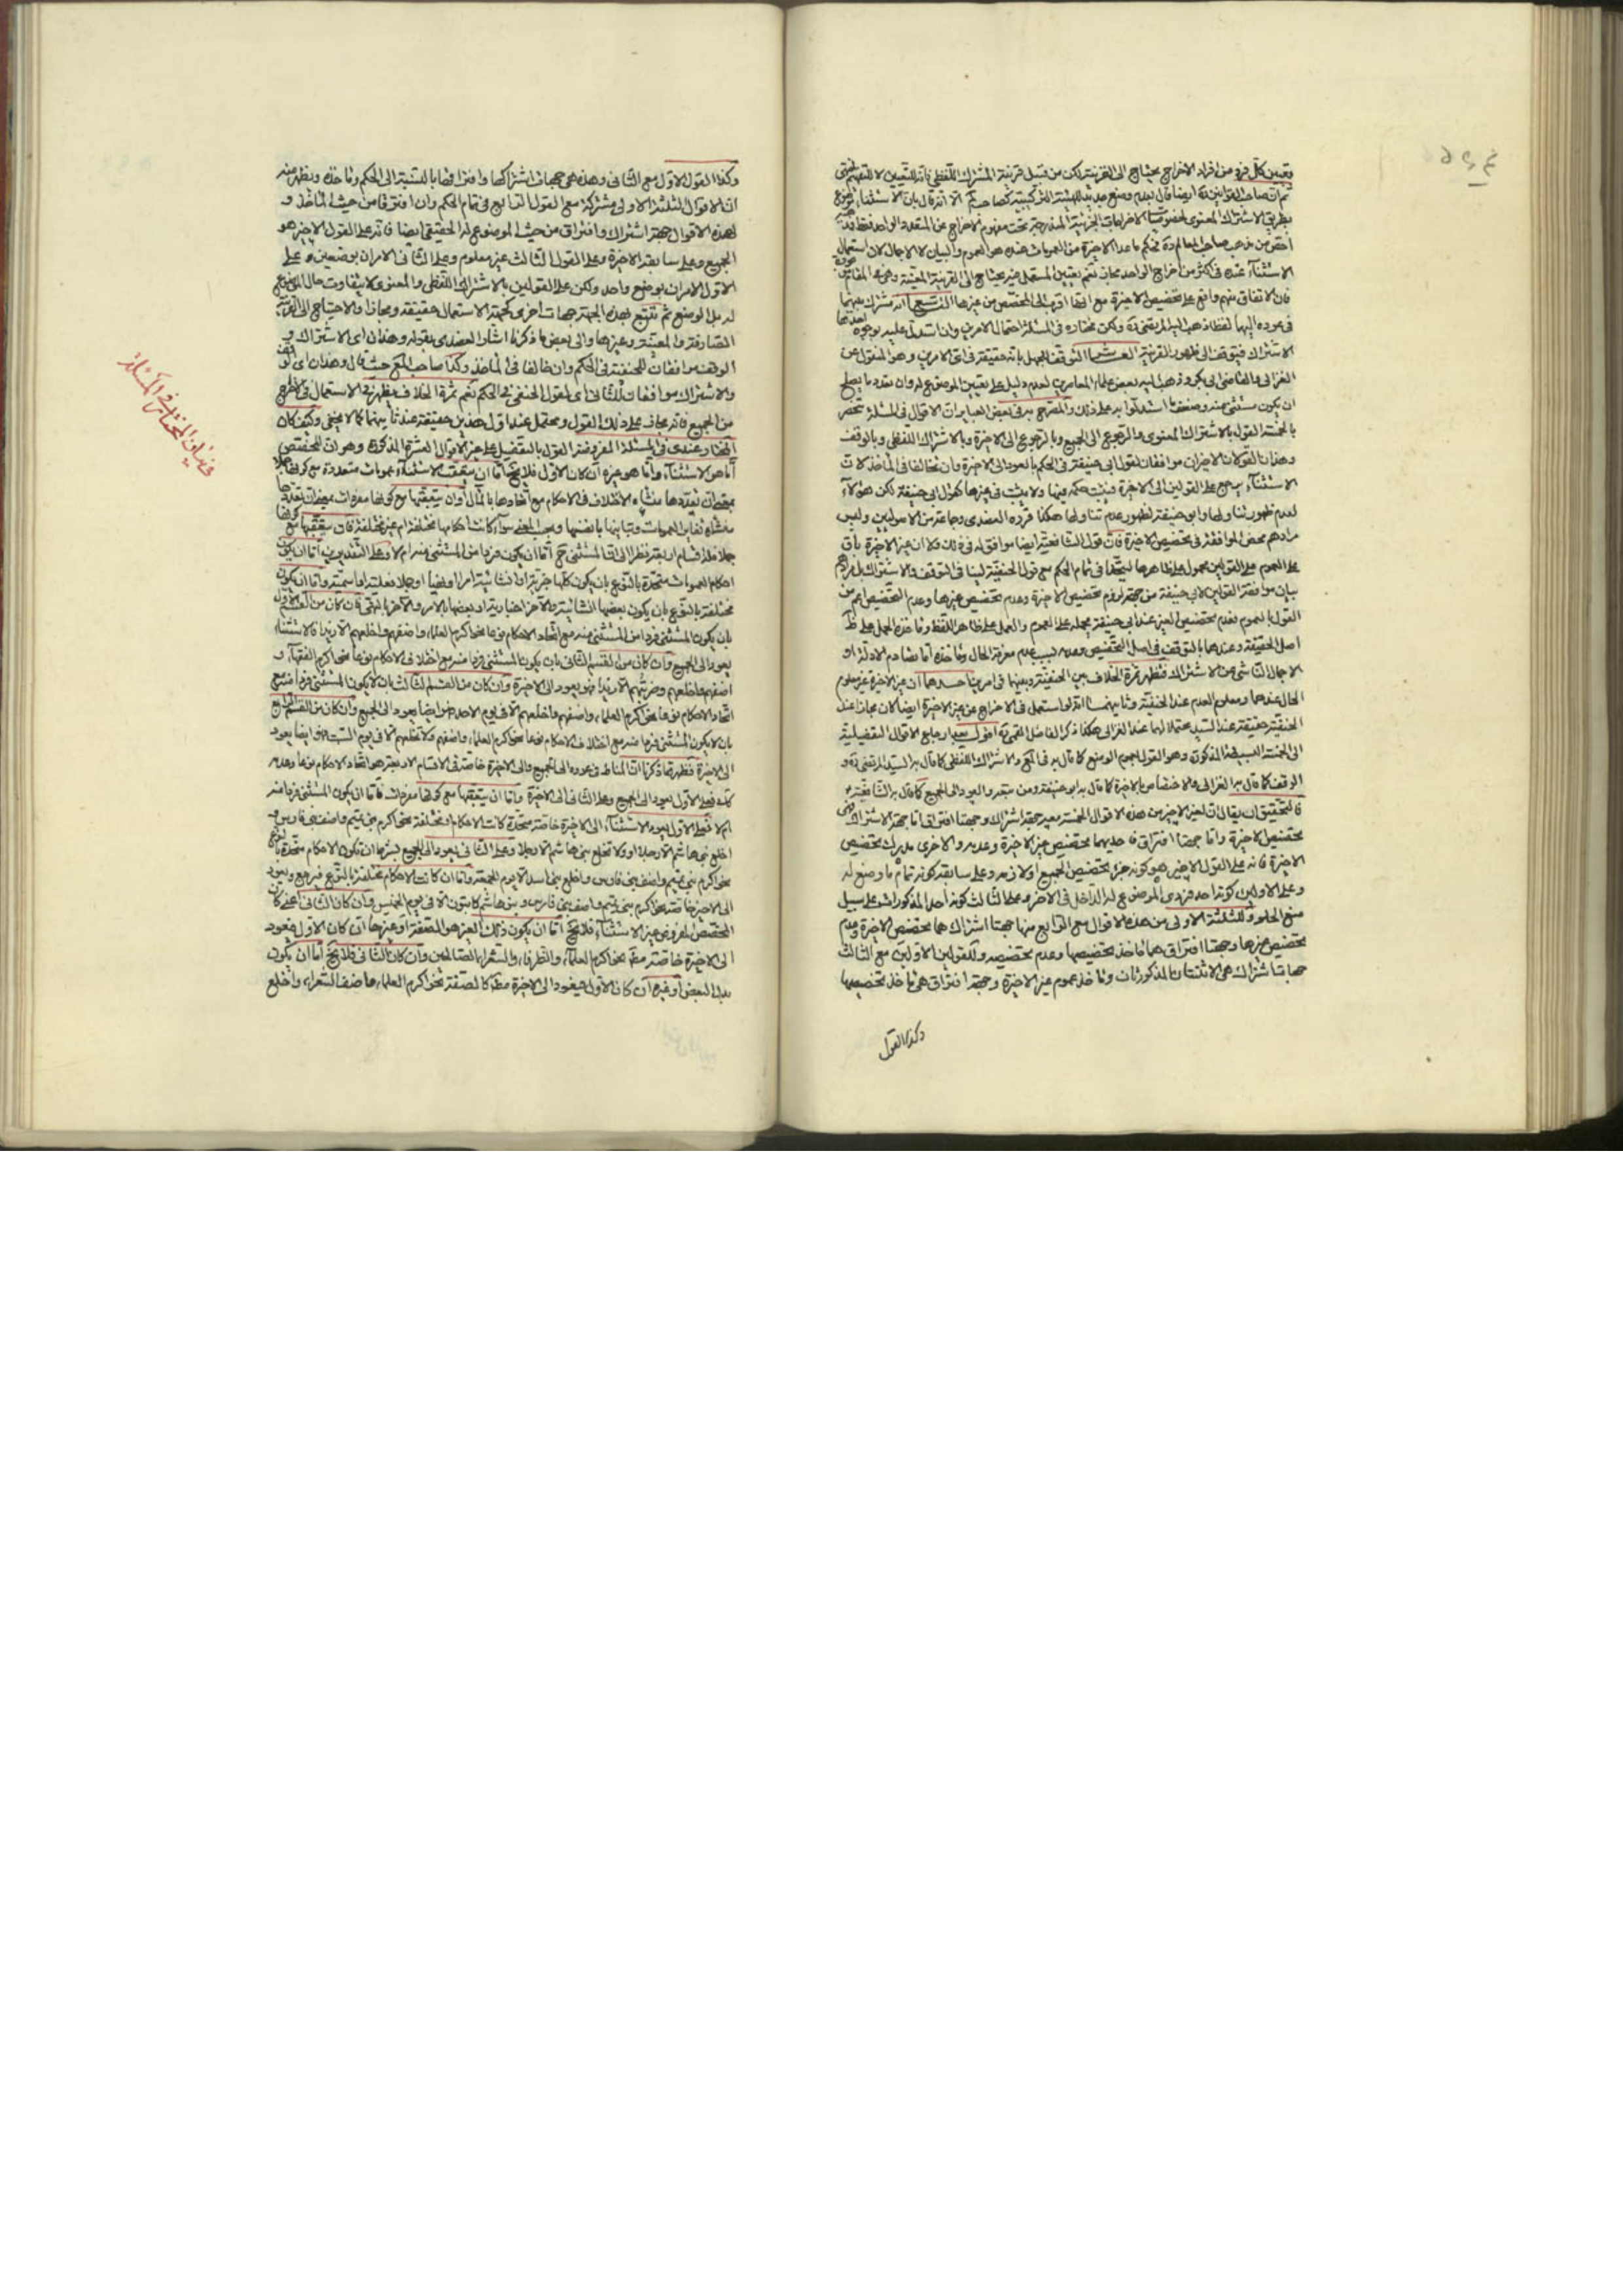 وتعيين كل فرد من افراد الاخراج يحتاج الى القرينة لكن من قبيل قرينة المشترك اللفظي فانه للتعيين لا للتفهيم
بطريق الاشتراك المعنوى لخصوصيات الاخراجات الجزئية المندرجة تحت مفهوم الاخراج عن المتعدد او الواحد
الاستثناء عنده فى اكثر من اخراج الواحد مجاز نعم تعيين المستعمل فيه يحتاج الى القرينة المعينة
فان الاتفاق منهم واقع على تخصيص الاخيرة مع انها اقرب الى المخصص من غيرها التاسع انه مشترك بينهما
فى عوده اليها لفظا ذهب اليه المرتضى ره ولكن مختاره فى المسئلة احتمال الامرين وان استدل عليه بوجوه
الاشتراك فيتوقف الى ظهور القرينة العاشر التوقف للجهل بانه حقيقة فى اى الامرين وهو المنقول عن
الغزالى والقاضى ابى بكر وذهب اليه بعض علماء المعاصرين لعدم دليل على تعيين الموضوع له وان تعدد ما يصلح
ان يكون مستثنى منه وضعف ما استدلوا به على ذلك والمصرح به فى بعض العبايرات الاقوال فى المسئلة تنحصر
بالخمسة القول بالاشتراك المعنوى والرجوع الى الجميع وبالرجوع الى الاخيرة وبالاشتراك اللفظى وبالوقف
وهذان القولان الاخيران موافقان لقول ابى حنيفة فى الحكم بالعود الى الاخيرة وان تخالفا فى المأخذ لان
الاستثناء يرجع على القولين الى الاخيرة فيثبت حكمه فيها ولا يثبت فى غيرها كقول ابى حنيفة لكن هؤلاء
لعدم ظهور تناولها وابو حنيفة لظهور عدم تناولها هكذا قرره العضدى وجماعة من الاصوليين وليس
مرادهم محض الموافقة فى تخصيص الاخيرة فان قول الشافعية ايضا موافق له فى ذلك ولا ان غير الاخيرة باق
على العموم على القولين محمول على ظاهرها ليتحدا فى تمام الحكم مع قول الحنفية لبنا فى التوقف والاشتراك بل مرادهم
بيان موافقة القولين لابى حنيفة من جهة لزوم تخصيص الاخيرة وعدم تخصيص غيرها وعدم التخصيص اعم من
القول بالعموم لعدم تخصيص الغير عند ابى حنيفة يحمله على العموم والعمل على ظاهر اللفظ وماخذه الحمل على
اصل الحقيقة وعندهما بالتوقف فى اصل التخصيص وعدمه لسبب عدم معرفة الحال وماخذه اما تصادم الادلة او
الاجمال الناشى من الاشتراك فتظهر ثمرة الخلاف بين الحنفية وبينهما فى امرين احدهما ان غير الاخيرة غير معلوم
الحال عندهما ومعلوم العدم عند الحنفية وثانيهما انه لو استعمل فى الاخراج عن غير الاخيرة ايضا كان مجازا عند
الحنفية حقيقة عند السيد محتملا لهما عند الغزالى هكذا ذكر الفاضل القمى ره اقول بعد ارجاع الاقوال التفصيلية
الى الخمسة البسيطة المذكورة وهو القول بعموم الوضع كما قال به فى المع والاشتراك اللفظى كما قال به السيد المرتضى ره و
الوقف كما قال به الغزالى والاختصاص بالاخيرة كما قال به ابو حنيفة ومن تبعه والعود الى الجميع كما قال به الشافعية
فالتحقيق ان يقال ان لغير الاخير من هذه الاقوال الخمسة بعد جهة اشتراك وجهتا افتراق اما جهة الاشتراك
تخصيص الاخيرة واما جهتا افتراق فاحديهما تخصيص غير الاخيرة وعدمه والاخرى مدرك تخصيص
الاخيرة فانه على القول الاخير هو كونه جزء تخصيص الجميع اولا فرد وعلى سابقه كونه تمام ما وضع له
وعلى الاولين كونه احد فردى الموضوع له الداخل فى الاخر وعلى الثالث كونه احد المذكورات على سبيل
منع الخلو وللثلثة الاولى من هذه الاقوال مع الرابع منها جهتا اشتراك هما تخصيص الاخيرة وعدم
تخصيص غيرها وجهتا افتراق هما ماخذ تخصيصها وعدم تخصيصه وللقولين الاولين مع الثالث
جهات اشتراك هى الاثنتان المذكورتان وماخذ عموم غير الاخيرة وجهة افتراق هى ماخذ تخصيصها
وكذا القول
وكذا القول الاول مع الثانى وهذه هى جهات اشتراكها وافتراقها بالنسبة الى الحكم وماخذه ويظهر منه
ان الاقوال الثلثة الاولى مشتركة مع القول الرابع فى تمام الحكم وان افترقا من حيث الماخذ و
لهذه الاقوال جهة اشتراك وافتراق من حيث الموضوع له الحقيقى ايضا فانه على القول الاخير هو
الجميع وعلى سابقه الاخيرة وعلى القول الثالث غير معلوم وعلى الثانى الامران بوضعين وعلى
الاول الامران بوضع واحد ولكن على القولين بالاشتراك اللفظى والمعنوى لا يتفاوت حال الموضوع
له بل الوضع ثم تتبع لهذه الجهة جهات اخرى كجهة الاستعمال حقيقة ومجازا والاحتياج الى القرينة
الصارفة والمعينة وغيرها والى بعض ما ذكرنا اشار العضدى بقوله وهذان اى الاشتراك و
الوقف موافقان للحنفية فى الحكم وان خالفا فى الماخذ وكذا صاحب المع حيث قال وهذان اى الوقف
والاشتراك موافقان للثانى اى لقول الحنفى فى الحكم نعم ثمرة الخلاف يظهر فى الاستعمال فى الاخراج
من الجميع فانه مجاز على ذلك القول ومحتمل عند اول هذين حقيقة عند ثانيهما كما لا يخفى وكيف كان
المختار عندى فى المسئلة المفروضة القول بالتفصيل على غير الاقوال العشرة المذكورة وهو ان المخصص
اما هو الاستثناء واما هو غيره ان كان الاول فلا يخ اما ان يتعقب الاستثناء عمومات متعددة مع كونها جملا
بمعنى ان تعددها منشاء الاختلاف فى الاحكام مع اتحادها بالمآل او ان يتعقبها مع كونها مفردات بمعنى ان تعددها
منشاه تغاير العمومات وتباينها بانفسها ويجب المعنى سواء كانت احكامها مختلفة ام غير مختلفة فان يتعقبها مع كونها
جملا فله اقسام اربعة نظرا الى ان المستثنى ح اما ان يكون فردا من المستثنى منه ام لا وعلى التقديرين اما ان يكون
احكام العمومات متحدة بالنوع بان يكون كلها خبرية او انشائية امرا او نهيا او جملا فعلية او اسمية واما ان يكون
مختلفة بالنوع بان يكون بعضها انشائية والاخر اخبارية او بعضها بالامر والاخر بالنهى فان كان من القسم الاول
بان يكون المستثنى فردا من المستثنى منه مع اتحاد الاحكام نوعا نحو اكرم العلماء واضفهم واخلعهم الا زيدا فالاستثناء
يعود الى الجميع وان كان من القسم الثانى بان يكون المستثنى فردا منه مع اختلاف الاحكام نوعا نحو اكرم الفقهاء و
اضفهم واخلعهم وضربتهم الا زيدا فهو يعود الى الاخيرة وان كان من القسم الثالث بان لا يكون المستثنى فردا منه مع
اتحاد الاحكام نوعا نحو اكرم العلماء واضفهم واخلعهم الا فى يوم الاحد فهو ايضا يعود الى الجميع وان كان من القسم الرابع
بان لا يكون المستثنى فردا منه مع اختلاف الاحكام نوعا نحو اكرم العلماء واضفهم ولا تخلعهم الا فى يوم السبت فهو ايضا يعود
الى الاخيرة فظهر مما ذكرنا ان المناط فى عوده الى الجميع والى الاخيرة خاصة فى الاقسام الاربعة هو اتحاد الاحكام نوعا وعدمه
كك فعلى الاول يعود الى الجميع وعلى الثانى الى الاخيرة واما ان يتعقبها مع كونها مفردات فاما ان يكون المستثنى فردا منه
ام لا فعلى الاول يعود الاستثناء الى الاخيرة خاصة متحدة كانت الاحكام او مختلفة نحو اكرم بنى تميم واضف بنى فارس و
اخلع بنى هاشم الا رجلا او ولا تخلع بنى هاشم الا رجلا وعلى الثانى يعود الى الجميع بشرط ان تكون الاحكام متحدة بالنوع
نحو اكرم بنى تميم واضف بنى فارس واخلع بنى اسد الا يوم الجمعة واما ان كانت الاحكام مختلفة بالنوع فيرجع ويعود
الى الاخيرة خاصة نحو اكرم بنى تميم واضف بنى فارس وبنى هاشم كاتبون الا فى يوم الخميس وان كان الثانى اعنى كان
المخصص المفروض غير الاستثناء فلا يخ اما ان يكون ذلك الغير هو الصفة او غيرها ان كان الاول فيعود
الى الاخيرة خاصة مطلقا نحو اكرم العلماء والظرفاء والشعراء الصالحين وان كان الثانى فلا يخ اما ان يكون
بدل البعض او غيره ان كان الاول فيعود الى الاخيرة مطلقا كالصفة نحو اكرم العلماء واضف الشعراء واخلع
فى بيان المختار فى المسئلة